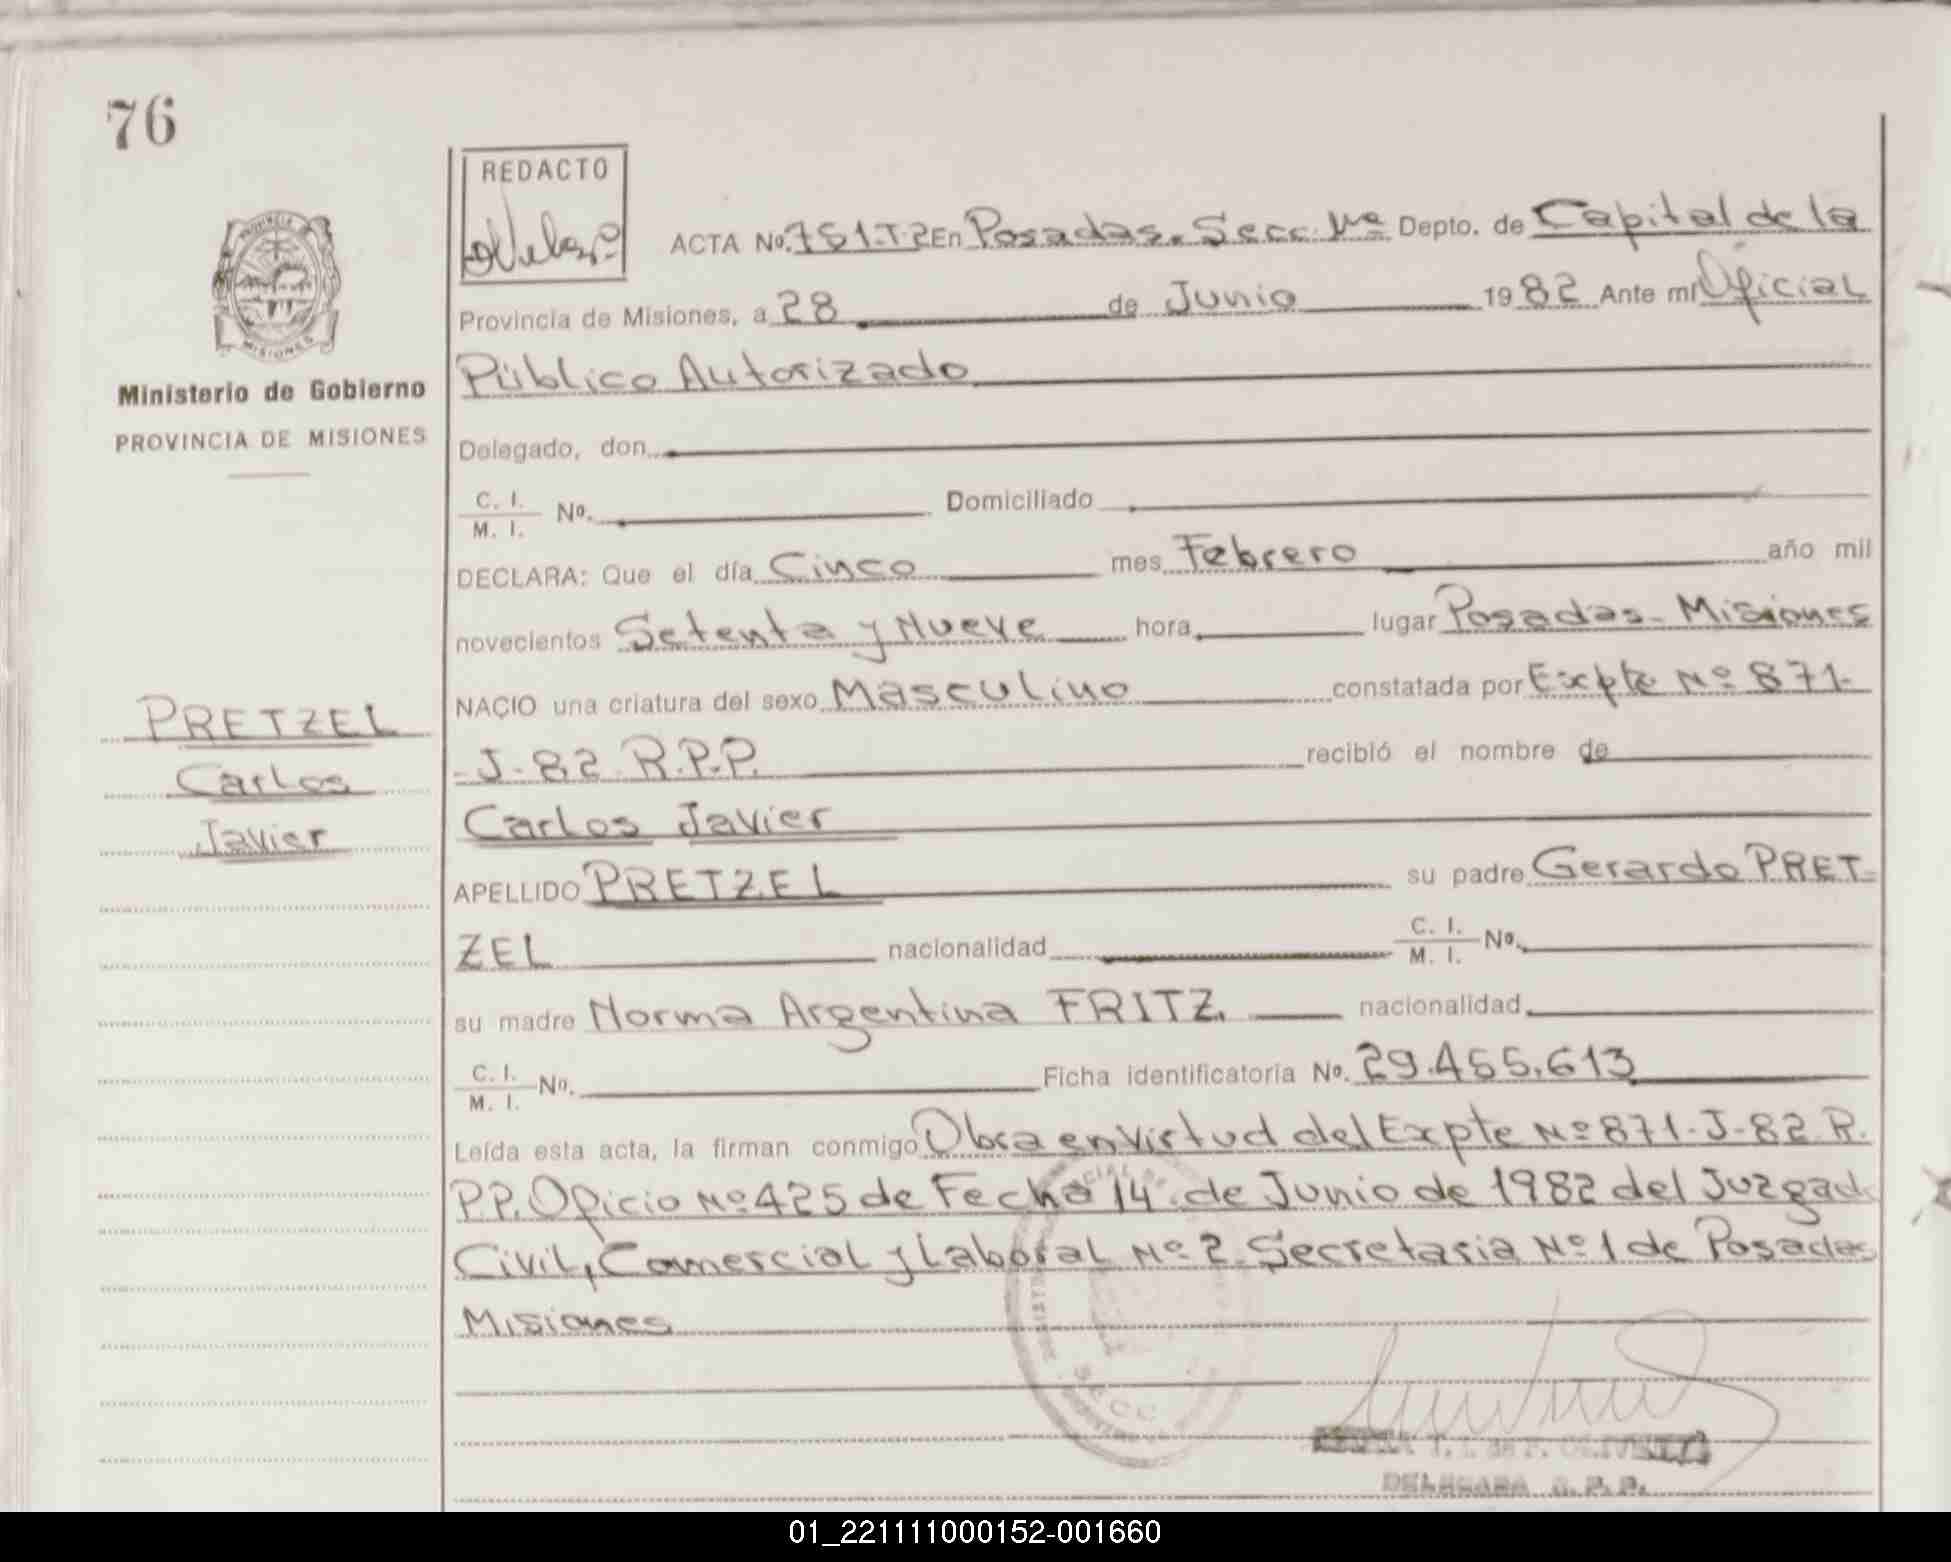 76
REDACTO
ACTA No. 751.T2 En Posadas. Secc. 1ra Depto. de Capital de la
Provincia de Misiones, a 28 de Junio 1982 Ante mí Oficial
Público Autorizado
PROVINCIA
MISIONES
Ministerio de Gobierno
PROVINCIA DE MISIONES
Delegado, don
C. I.
M. I. No. Domiciliado
DECLARA: Que el día Cinco mes Febrero año mil
novecientos Setenta y Nueve hora lugar Posadas - Misiones
NACIO una criatura del sexo Masculino constatada por Expte Nº 871-
- J - 82 R.P.P. recibió el nombre de
PRETZEL
Carlos
Javier
Carlos Javier
APELLIDO PRETZEL su padre Gerardo PRET-
ZEL nacionalidad C. I.
M. I. No.
su madre Norma Argentina FRITZ. nacionalidad
C. I.
M. I. No. Ficha identificatoria No. 29.455.613
Leída esta acta, la firman conmigo Obra en virtud del Expte Nº 871-J-82 R.
P.P. Oficio Nº 425 de Fecha 14 de Junio de 1982 del Juzgado
Civil, Comercial y Laboral Nº 2 Secretaria Nº 1 de Posadas
Misiones
SECC
DELEGADA R. P. P.
01_221111000152-001660